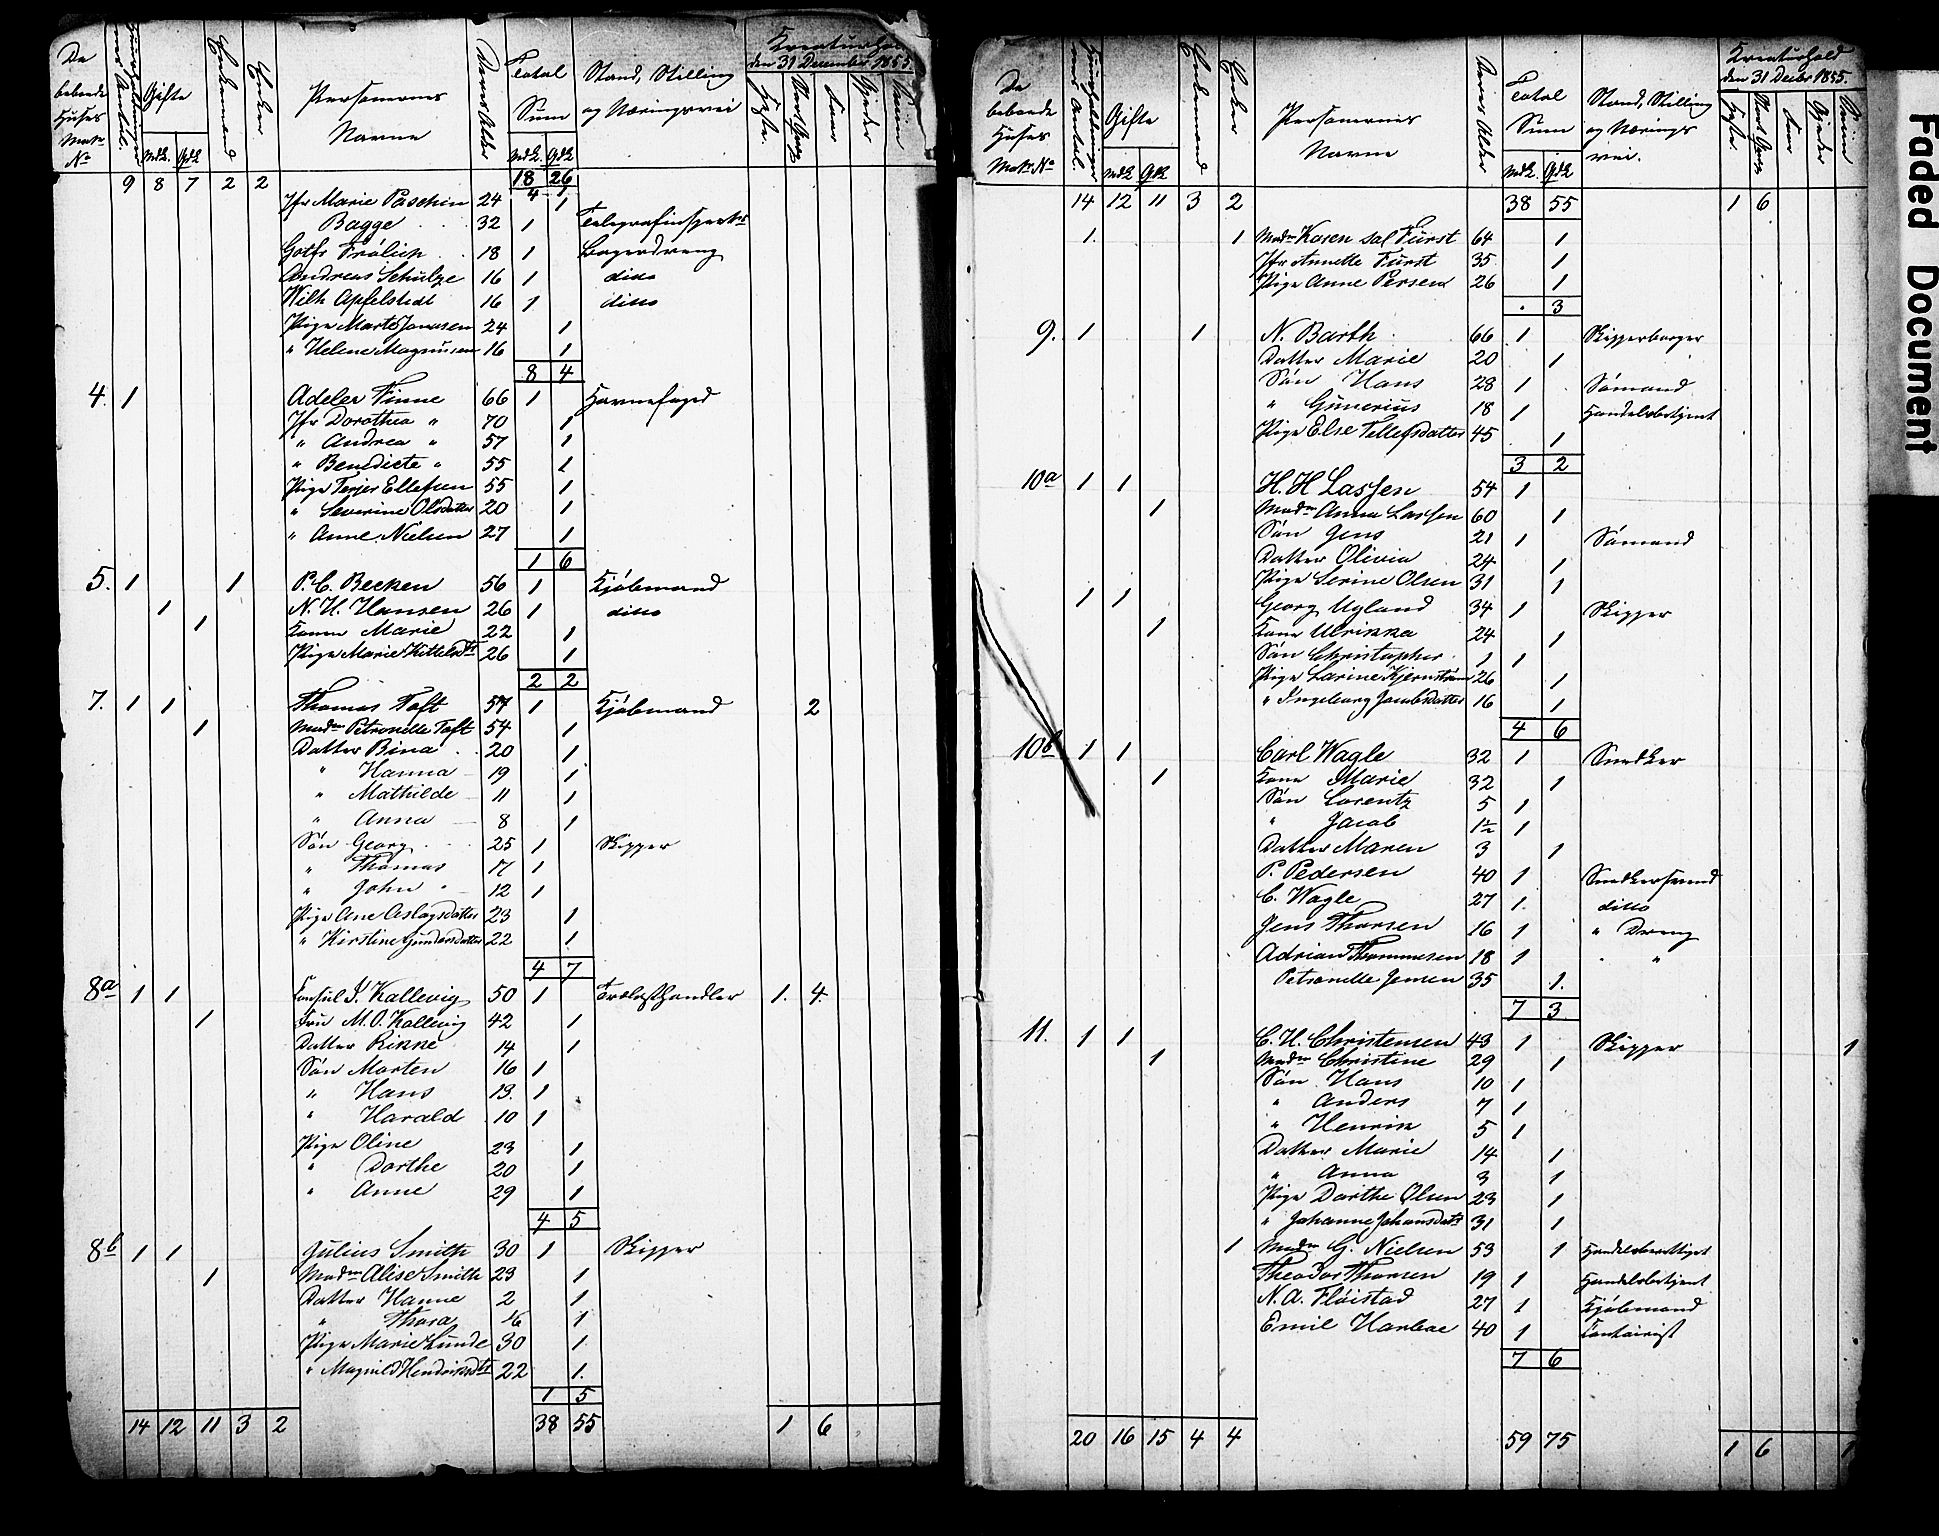 De bebœede Huses Matr. No | Huusholdningernes Antal. | Gifte Mdk. Qdk | Enkemænd | Enker | Personernes Navne | Deres Alder | Total Sum Mdk. Qdk | Stand, Stilling og Næringsvei | Kreaturhold den 31 December 1855. Heste. Stort Qvæg Faar Gjeder Sviin
9 8 7 2 2 18 26
Jfr Marie Paschin 24 1
Bagge 32 1 Telegrafinspekt
Gotfr Frølich 18 1 Bagerdreng
Andreas Schulze 16 1 ditto
Wilh Apfelstedt 16 1 ditto
Pige Marte Jonassen 24 1
" Helene Magnusen 16 1
8 4
4. 1 Adeler Finne 66 1 Havnefoged
Jfr Dorothea " 70 1
" Andrea " 57 1
" Benedicte " 55 1
Pige Terjer Ellefsen 55 1
" Severine Olsdatter 20 1
" Anne Nielsen 27 1
1 6
5. 1 1 P. C. Becken 56 1 Kjøbmand
1 N. H. Hansen 26 1 ditto
1 Konen Marie 22 1
Pige Marie Kittelsdt 26 1
2 2
7. 1 1 Thomas Toft 57 1 Kjøbmand 2
1 Madm Petronelle Toft 54 1
Datter Bina 20 1
" Hanna 19 1
" Mathilde 11 1
" Anna 8 1
Søn Georg 25 1 Skipper
" Thomas 17 1
" John " 12 1
Pige Ane Aslagsdatter 23 1
" Kirstine Gundersdatter 22 1
4 7
8a 1 1 Consul J. Kallevig 50 1 Trælasthandler 1. 4.
1 Fru M. O. Kallevig 42 1
Datter Rikke 14 1
Søn Morten 16 1
" Hans 13. 1
" Harald 10 1
Pige Oline 23 1
" Dorthe 20 1
" Anne 29 1
4 5
8b 1 1 Julius Smith 30 1 Skipper
1 Madm Alise Smith 23 1
Datter Hanne 2 1
" Thora 1
Pige Marie Lunde 30 1
" Magnild Hendriksdt 22 1.
1 5
14 12 11 3 2 38 55 1 6
De bebœede Huses Matr No | Huusholdningernes Antal. | Gifte Mdk Qdk | Enkemænd | Enker | Personernes Navne | Deres Alder | Total Sum Mdk. Qdk | Stand, Stilling og Nærings vei. | Kreaturhold den 31 Decbr 1855. Heste Stort Qvæg Faar Gjeder Sviin
14 12 11 3 2 38 55 1 6
1. 1 Madm Karen sal Fürst 64 1
Jfr Annette Fürst 35 1
Pige Anne Persen 26 1
. 3
9. 1 1 N. Barth 66 1 Skipperborger
Datter Marie 20 1
Søn Hans 28 1 Sømand
" Gunerius 18 1 Handelsbetjent
Pige Else Tellefsdatter 45 1
3 2
10a 1 1 H. H Lassen 54 1
1 Madm Anna Lassen 60 1
Søn Jens 21 1 Sømand
Datter Olivia 24 1
Pige Serine Olsen 31 1
1 1 Georg Ugland 34 1 Skipper
1 Kone Ulrikka 24 1
Søn Christopher 1 1
Pige Larine Kjernstrøm 26 1
" Ingeborg Jacobsdatter 16 1
4 6
10b 1 1 Carl Wagle 32 1 Snedker
1 Kone Marie 32 1
Søn Lorentz 5 1
" Jacob 1½ 1
Datter Maren 3 1
P. Pedersen 40 1 Snedkersvend
C. Wagle 27 1. ditto
Jens Thorsen 16 1 " Dreng
Adrian Thommesen 18 1 " "
Petronelle Jensen 35 1.
7 3
11. 1 1 C. H. Christensen 43 1 Skipper 1
1 Madm Christine 29 1
Søn Hans 10 1
" Anders 7 1
" Henrik 5 1
Datter Marie 14 1
" Anna 3 1
Pige Dorthe Olsen 23 1
" Johanne Johansdatt 31 1
1 Madm G. Nielsen 53 1 Handelsberettiget
Theodor Thorsen 19 1 Handelsbetjent
N. A. Fløistad 27 1 Kjøbmand
Emil Harboe 40 1 Contoirist
7 6
20 16 15 4 4 59 75 1 6 1
Faded Document